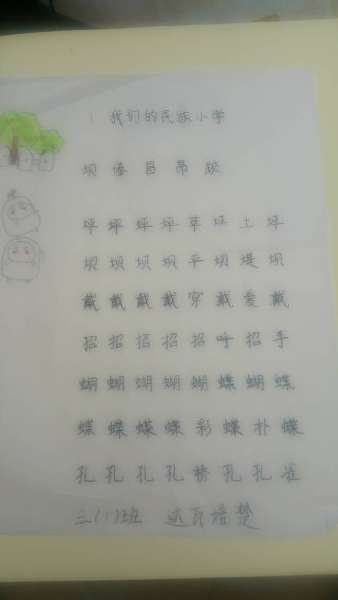 1 我们的民族小学
坝 傣 昌 昂 跤
坪 坪 坪 坪 草 坪 土 坪
坝 坝 坝 坝 平 坝 堤 坝
戴 戴 戴 戴 穿 戴 爱 戴
招 招 招 招 招 呼 招 手
蝴 蝴 蝴 蝴 蝴 蝶 蝴 蝶
蝶 蝶 蝶 蝶 彩 蝶 扑 蝶
孔 孔 孔 孔 桥 孔 孔 雀
三(1)班 达瓦培楚